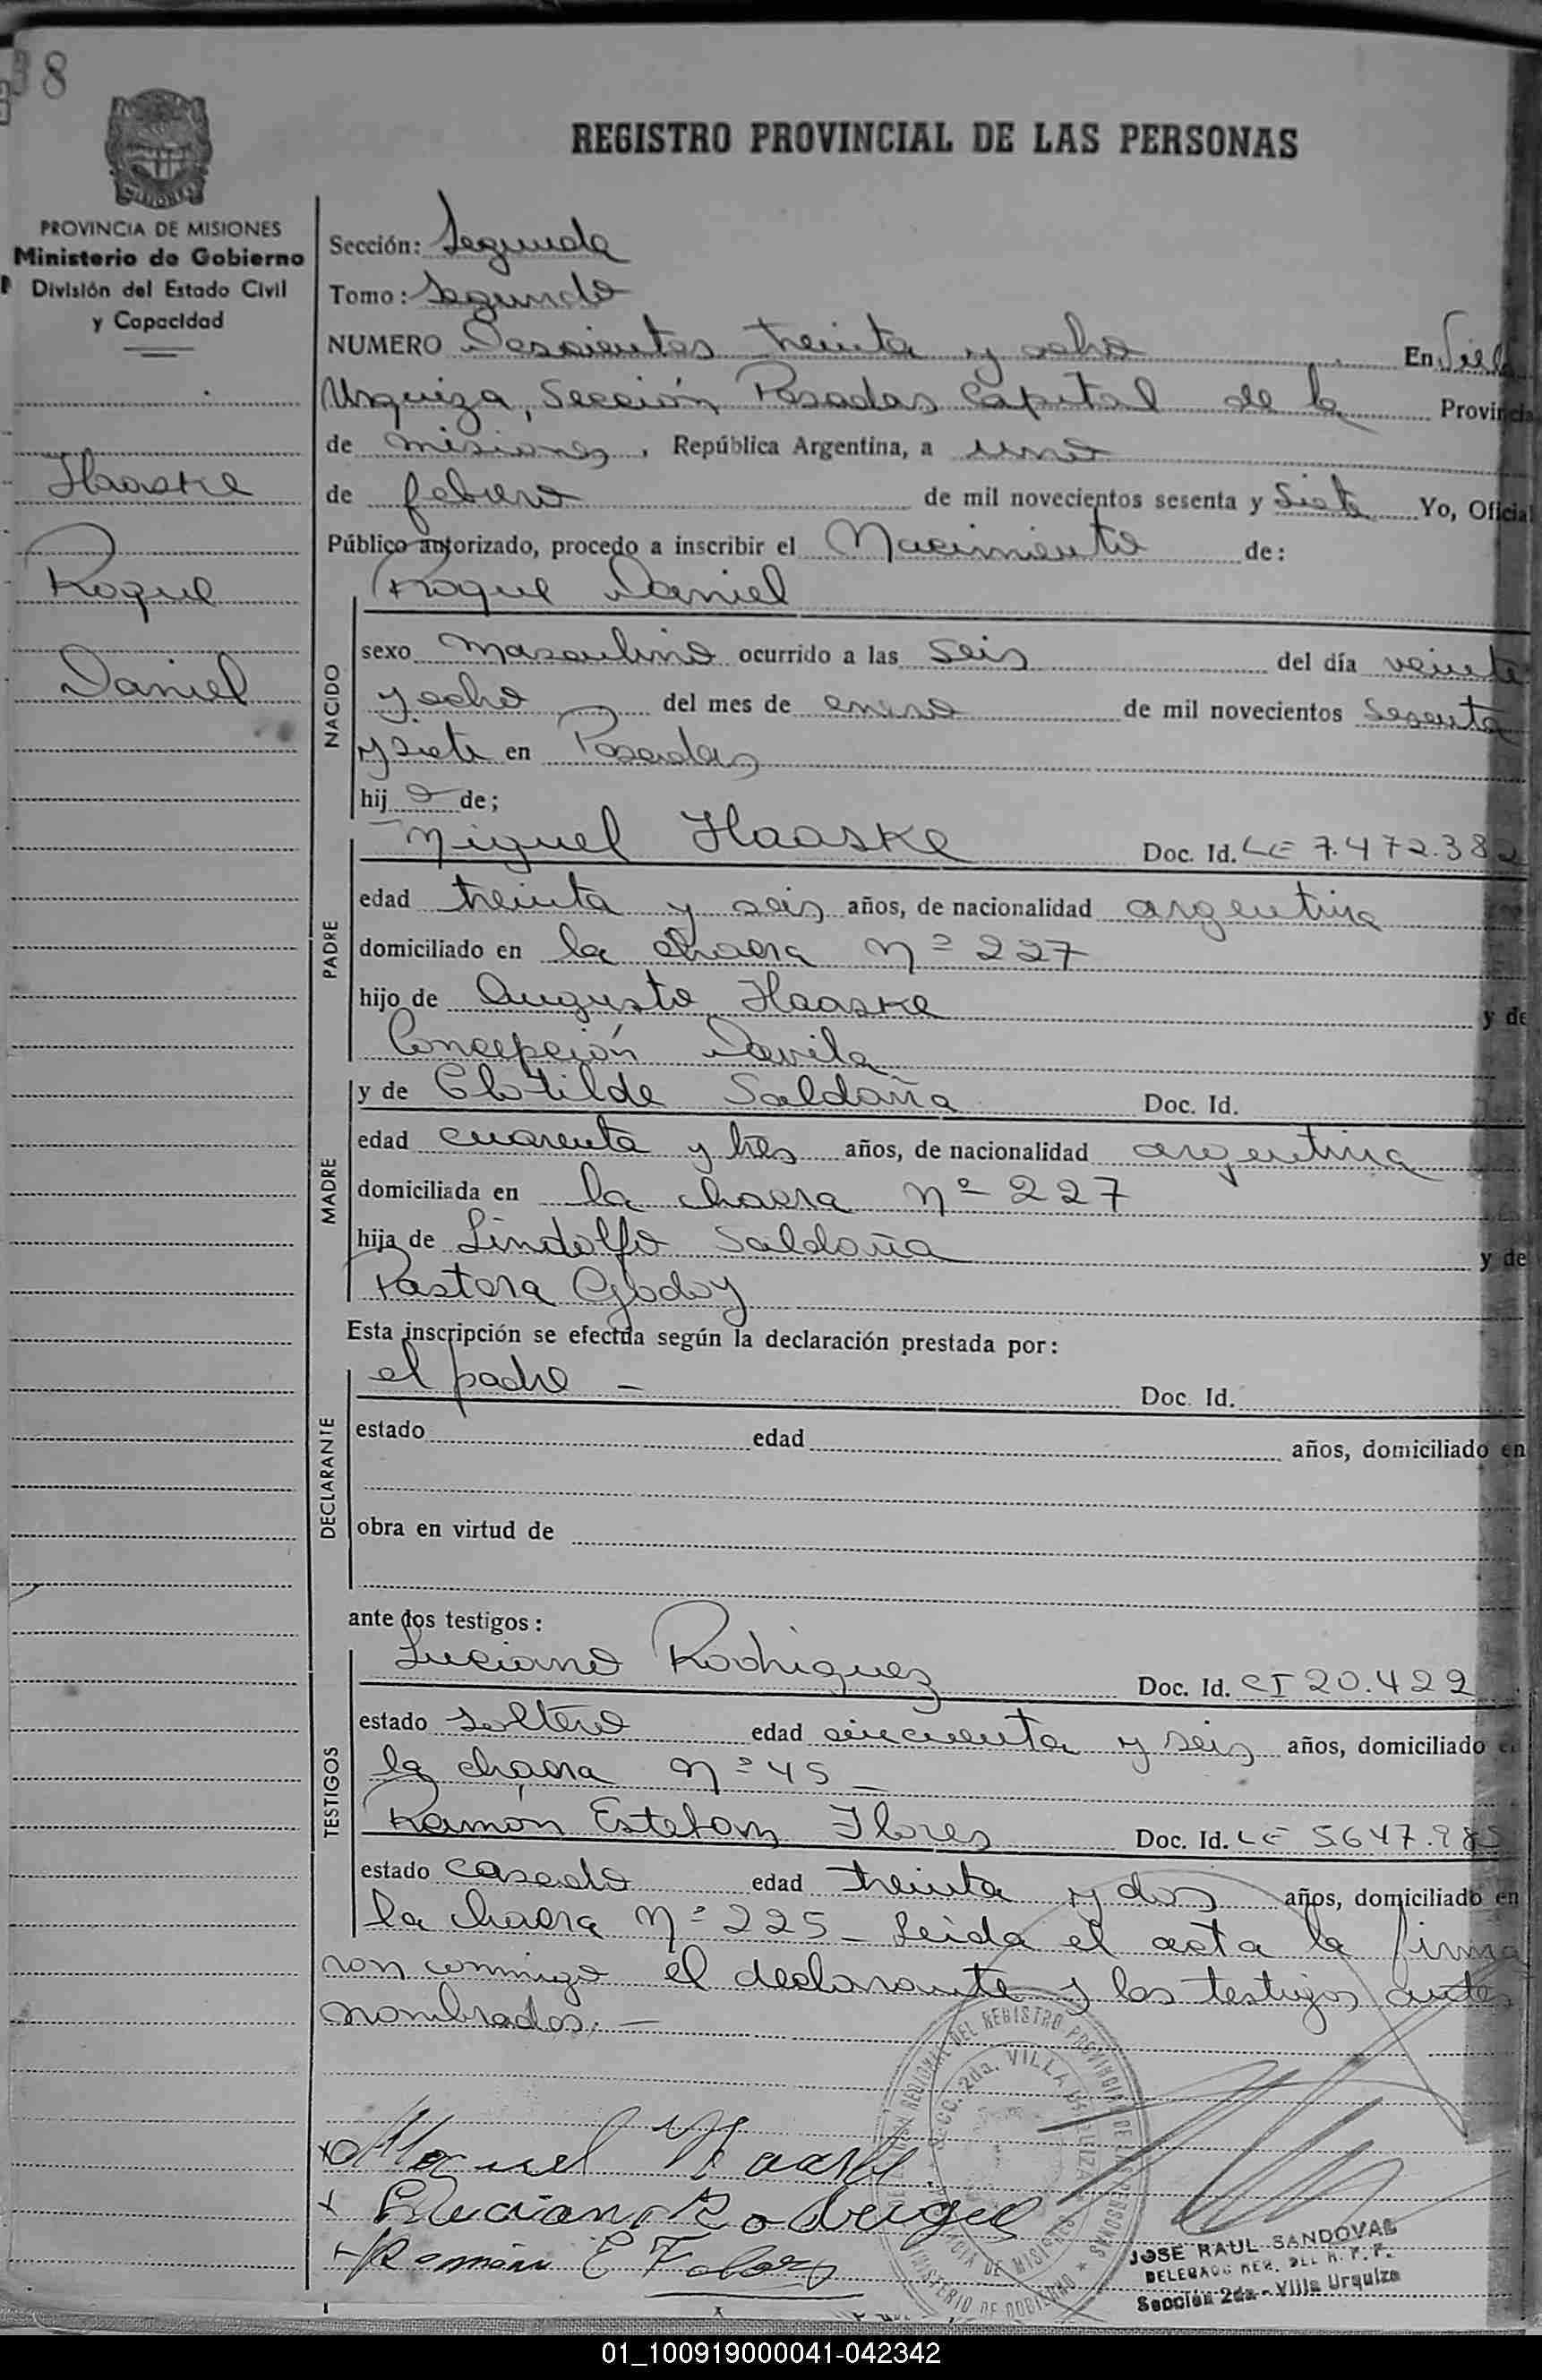 38
REGISTRO PROVINCIAL DE LAS PERSONAS
PROVINCIA DE MISIONES
Ministerio de Gobierno
División del Estado Civil
y Capacidad
Haaske
Roque
Daniel
Sección: Segunda
Tomo: Segundo
NUMERO Doscientos treinta y ocho En Villa
Urquiza, Sección Posadas Capital de la Provincia
de misiones, República Argentina, a uno
de febrero de mil novecientos sesenta y Siete Yo, Oficial
Público autorizado, procedo a inscribir el Nacimiento de:
Roque Daniel
NACIDO
sexo masculino ocurrido a las seis del día veinte
y ocho del mes de enero de mil novecientos sesenta
y siete en Posadas
hijo de;
PADRE
Miguel Haaske Doc. Id. LE 7.472.382
edad treinta y seis años, de nacionalidad argentina
domiciliado en la chacra nº 227
hijo de Augusto Haaske y de
Concepción Davila
MADRE
y de Clotilde Saldaña Doc. Id.
edad cuarenta y tres años, de nacionalidad argentina
domiciliada en la chacra nº 227
hija de Lindolfo Saldaña y de
Pastora Godoy
Esta inscripción se efectúa según la declaración prestada por:
DECLARANTE
el padre - Doc. Id.
estado edad años, domiciliado en
obra en virtud de
ante dos testigos:
TESTIGOS
Luciano Rodriguez Doc. Id. CI 20.422
estado soltero edad cincuenta y seis años, domiciliado en
la chacra nº 45 -
Ramón Esteban Flores Doc. Id. LE 5.647.985
estado casado edad treinta y dos años, domiciliado en
la chacra nº 225 - Leida el acta la firma
ron conmigo el declarante y los testigos antes
nombrados. -
Miguel Haaske
Luciano Rodrigue
Ramón E Flores
REGIONAL DEL REGISTRO PROVINCIAL DE LAS PERSONAS
SECC. 2da. VILLA URQUIZA
PROVINCIA DE MISIONES
MINISTERIO DE GOBIERNO
JOSE RAUL SANDOVAL
DELEGADO REG. DEL R. P. P.
Sección 2da - Villa Urquiza
01_100919000041-042342